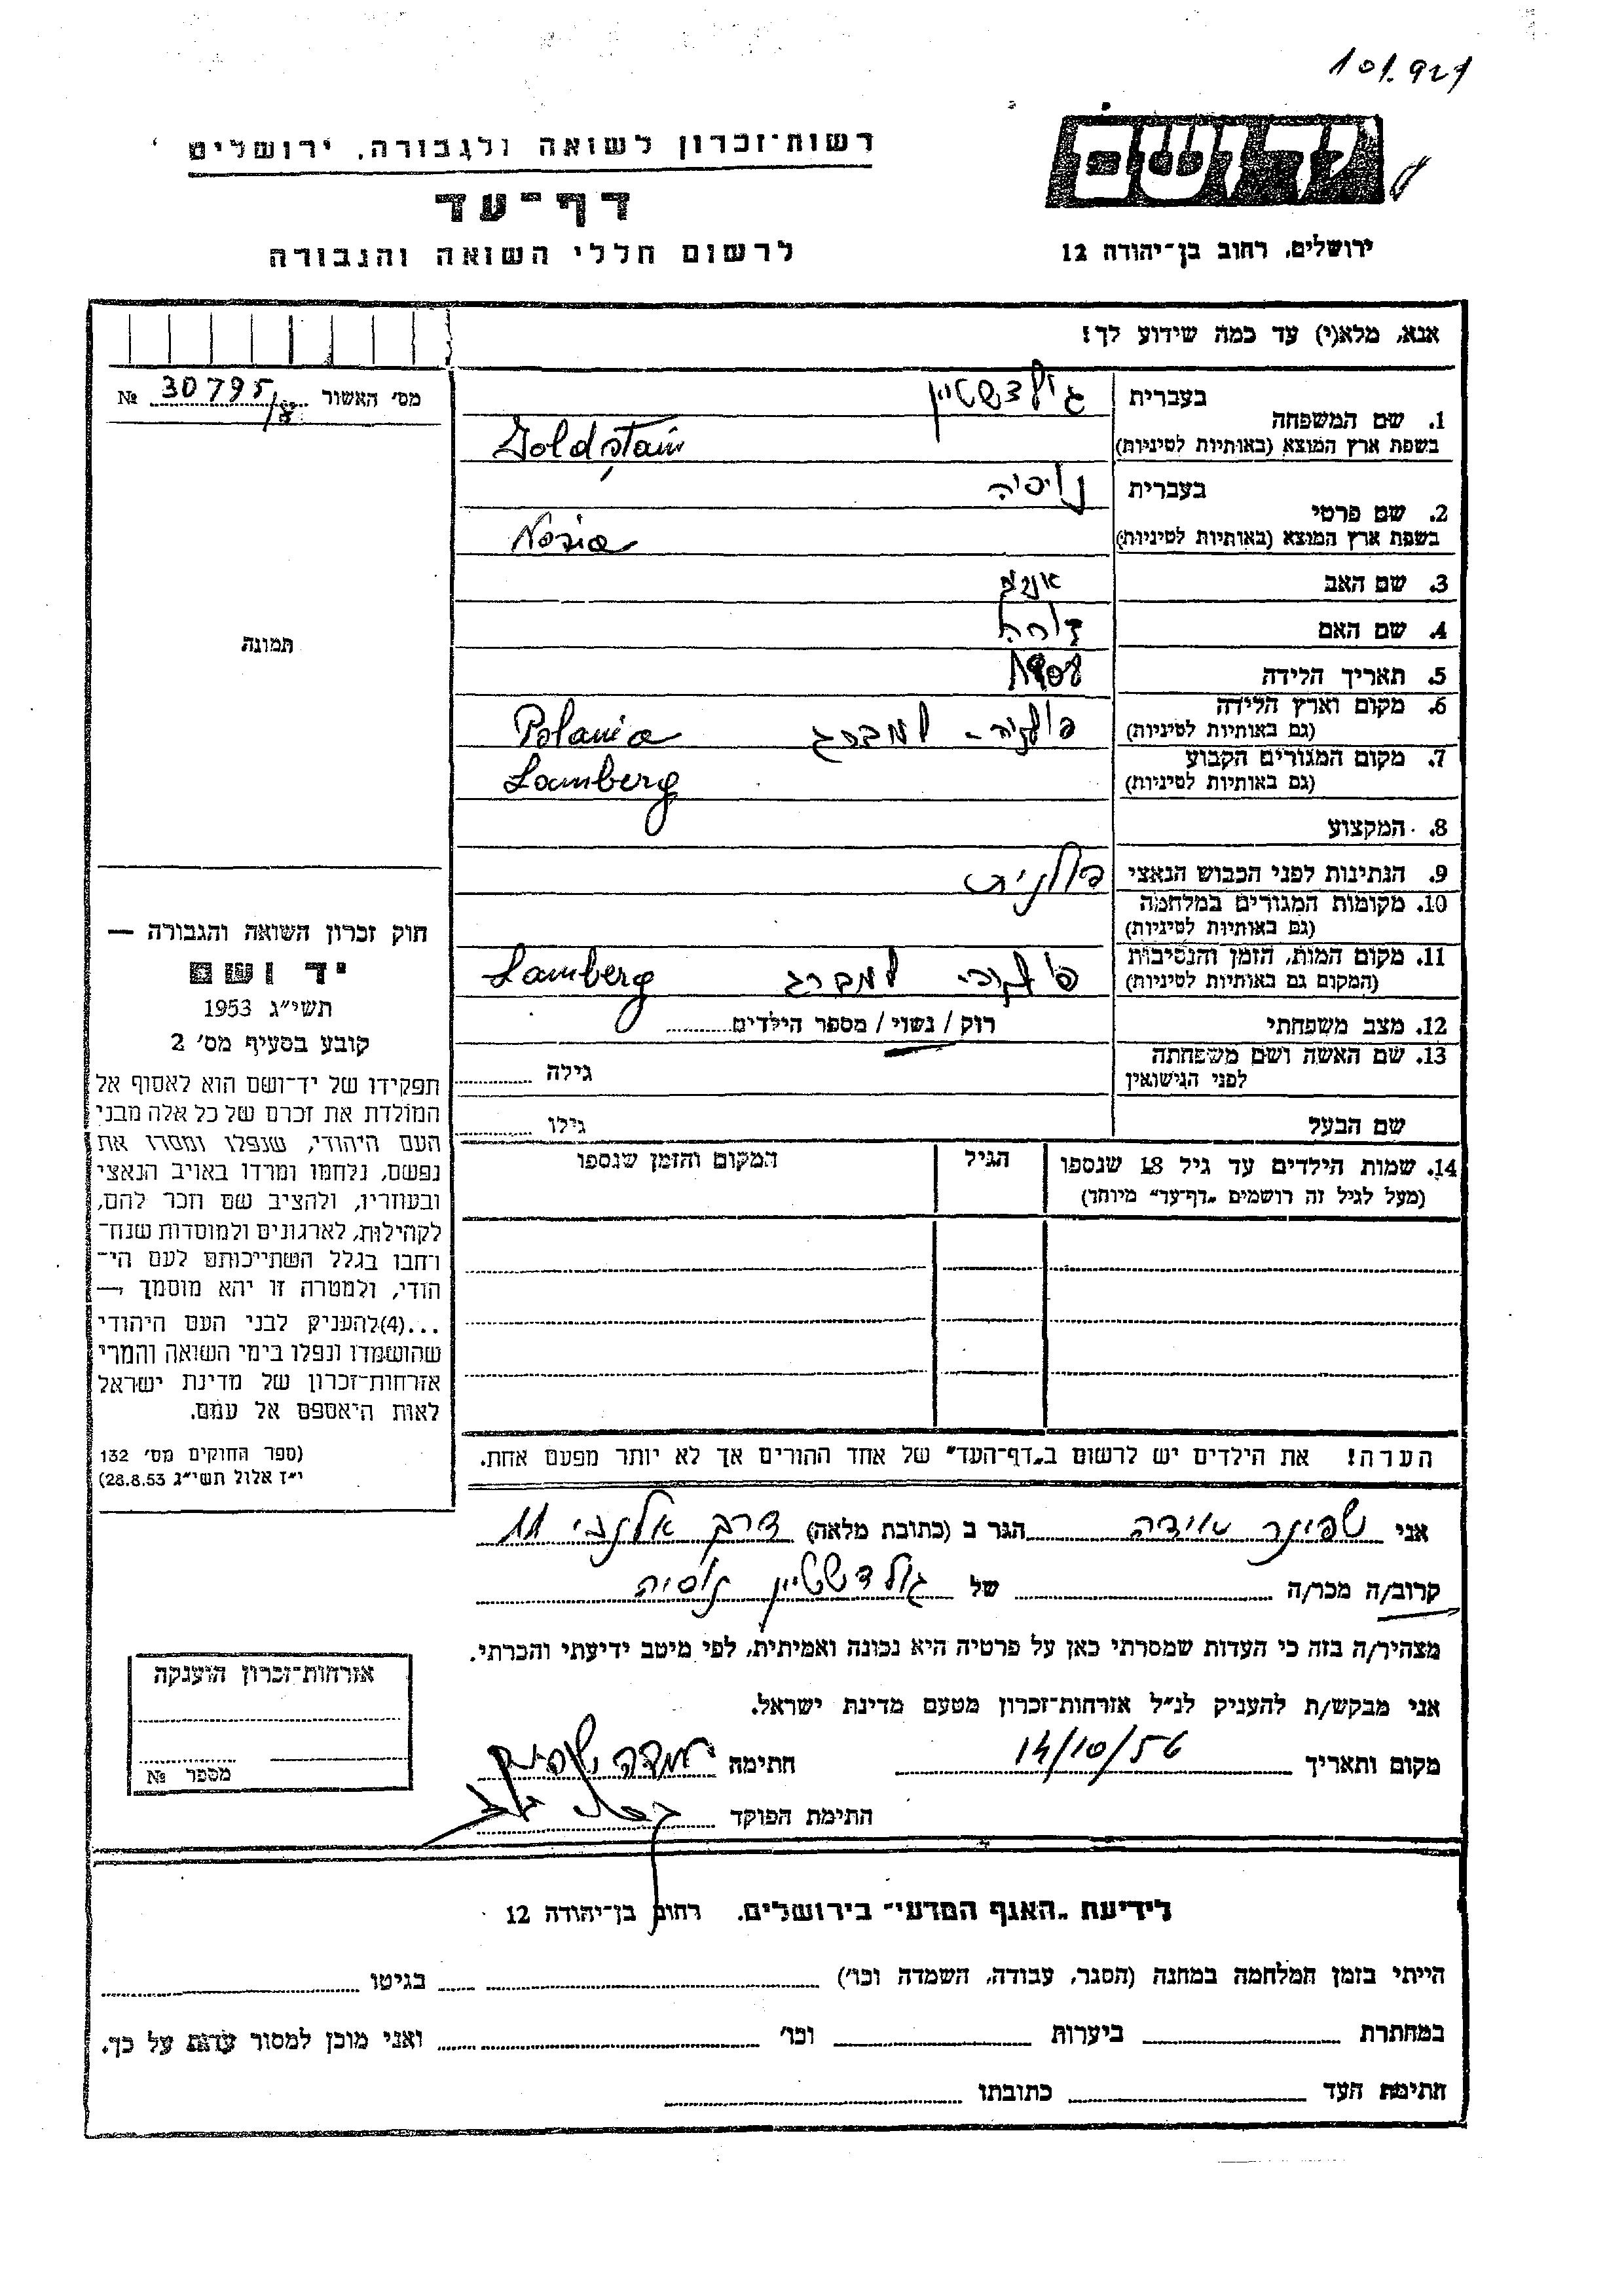 101.927
רשות־זכרון לשואה ולגבורה, ירושלים
דף־עד
לרשום חללי השואה והגבורה
ידושם
ירושלים, רחוב בן־יהודה 12
אנא, מלא(י) עד כמה שידוע לך!
מס׳ האשור 30795 №
1. שם המשפחה
בעברית גולדשטיין
בשפת ארץ המוצא (באותיות לטיניות) Goldstain
2. שם פרטי
בעברית נוסיה
בשפת ארץ המוצא (באותיות לטיניות) Nosia
3. שם האב
4. שם האם
5. תאריך הלידה 1908
6. מקום וארץ הלידה
(גם באותיות לטיניות) פולניה - למברג Polania
7. מקום המגורים הקבוע
(גם באותיות לטיניות) Lamberg
8. המקצוע
9. הנתינות לפני הכבוש הנאצי פולנית
10. מקומות המגורים במלחמה
(גם באותיות לטיניות)
11. מקום המות, הזמן והנסיבות
(המקום גם באותיות לטיניות) למברג Lamberg
12. מצב משפחתי רוק / נשוי / מספר הילדים
13. שם האשה ושם משפחתה
לפני הנישואין גילה
שם הבעל גילו
14. שמות הילדים עד גיל 18 שנספו הגיל המקום והזמן שנספו
(מעל לגיל זה רושמים „דף־עד״ מיוחד)
הערה! את הילדים יש לרשום ב„דף־העד״ של אחד ההורים אך לא יותר מפעם אחת.
תמונה
חוק זכרון השואה והגבורה —
יד ושם
תשי״ג 1953
קובע בסעיף מס׳ 2
תפקידו של יד־ושם הוא לאסוף אל
המולדת את זכרם של כל אלה מבני
העם היהודי, שנפלו ומסרו את
נפשם, נלחמו ומרדו באויב הנאצי
ובעוזריו, ולהציב שם וזכר להם,
לקהילות, לארגונים ולמוסדות שנח־
רבו בגלל השתייכותם לעם הי־
הודי, ולמטרה זו יהא מוסמך —
...(4)להעניק לבני העם היהודי
שהושמדו ונפלו בימי השואה והמרי
אזרחות־זכרון של מדינת ישראל
לאות היאספם אל עמם.
(ספר החוקים מס׳ 132
י״ז אלול תשי״ג 28.8.53)
אני שפינר אידה הגר ב (כתובת מלאה) דרך אלנבי 11
קרוב/ה מכר/ה של גולדשטיין נוסיה
מצהיר/ה בזה כי העדות שמסרתי כאן על פרטיה היא נכונה ואמיתית, לפי מיטב ידיעתי והכרתי.
אני מבקש/ת להעניק לנ״ל אזרחות־זכרון מטעם מדינת ישראל.
מקום ותאריך 14/10/56 חתימה
חתימת הפוקד
אזרחות־זכרון הוענקה
מספר №
לידיעת „האגף המדעי״ בירושלים. רחוב בן־יהודה 12
הייתי בזמן המלחמה במחנה (הסגר, עבודה, השמדה וכו׳) בגיטו
במחתרת ביערות וכו׳ ואני מוכן למסור עדות על כך.
חתימת העד כתובתו